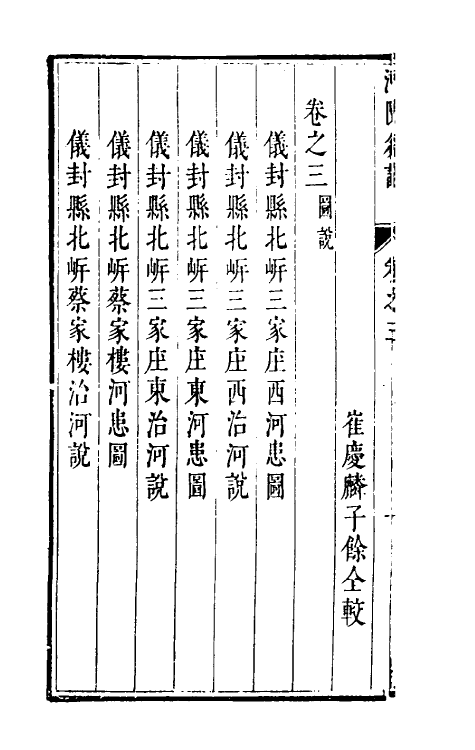 崔慶麟子餘仝較
卷之三 圖說
儀封縣北㟁三家庄西河患圖
儀封縣北㟁三家庄西治河說
儀封縣北㟁三家庄東河患圖
儀封縣北㟁三家庄東治河說
儀封縣北㟁蔡家樓河患圖
儀封縣北㟁蔡家樓治河說